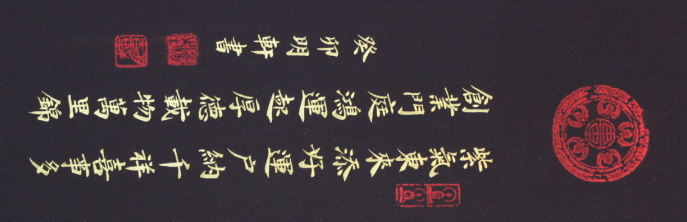 紫氣東來添好運户納千祥喜事多
創業門庭鴻運起厚德載物萬里錦
癸卯明軒書